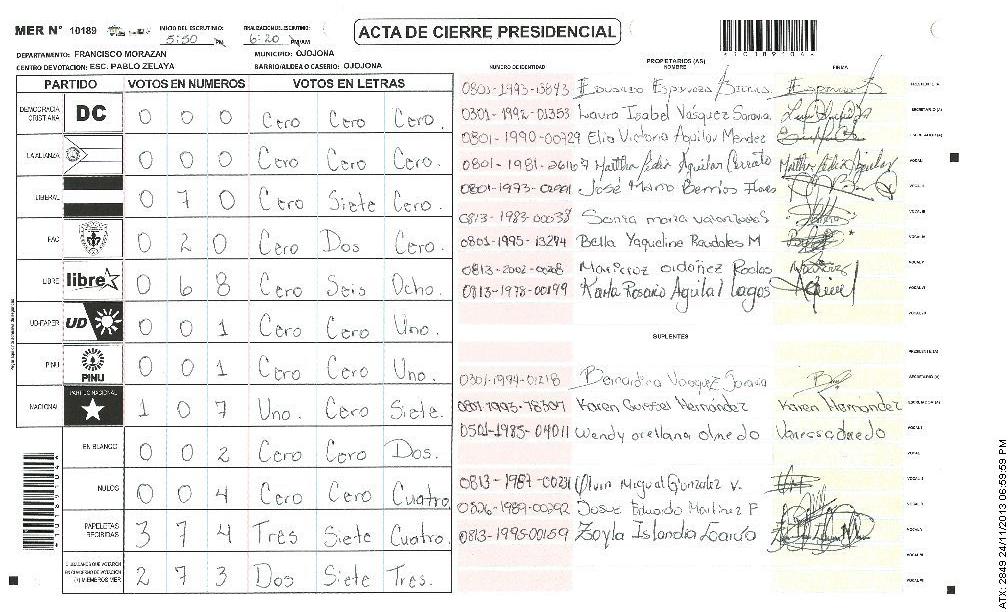 MER N° 10189 INICIO DEL ESCRUTINIO: 5:50 PM FINALIZACION DEL ESCRUTINIO: 6:20 PM/AM
ACTA DE CIERRE PRESIDENCIAL
DEPARTAMENTO: FRANCISCO MORAZAN MUNICIPIO: OJOJONA
CENTRO DE VOTACION: ESC. PABLO ZELAYA BARRIO/ALDEA O CASERIO: OJOJONA
PARTIDO VOTOS EN NUMEROS VOTOS EN LETRAS
DEMOCRACIA CRISTIANA DC 0 0 0 Cero Cero Cero.
LA ALIANZA 0 0 0 Cero Cero Cero.
LIBERAL 0 7 0 Cero Siete Cero.
PAC 0 2 0 Cero Dos Cero.
LIBRE libre 0 6 8 Cero Seis Ocho.
UD-FAPER UD 0 0 1 Cero Cero Uno.
PINU PINU 0 0 1 Cero Cero Uno.
NACIONAL PARTIDO NACIONAL 1 0 7 Uno. Cero Siete.
EN BLANCO 0 0 2 Cero Cero Dos.
NULOS 0 0 4 Cero Cero Cuatro
PAPELETAS RECIBIDAS 3 7 4 Tres Siete Cuatro.
CIUDADANOS QUE VOTARON EN CUADERNO DE VOTACION (+) MIEMBROS MER 2 7 3 Dos Siete Tres.
PROPIETARIOS (AS)
NUMERO DE IDENTIDAD NOMBRE FIRMA
0801-1993-13893 Eduardo Espinoza PRESIDENTE (A)
0301-1992-01353 Laura Isabel Vásquez SECRETARIO (A)
0801-1990-00929 Elia Victoria Aguilar Mendez ESCRUTADOR (A)
0801-1981- Martha Aguilar Cerrato Martha Aguilar VOCAL I
0801-1973- José Mario Berrios Flores VOCAL II
0813-1983-00038 Santa maria VOCAL III
0801-1995-13274 Bella Yaqueline Raudales M VOCAL IV
0813-2002- Maricruz ordóñez Rodas VOCAL V
0813-1978-00199 Karla Rosario Aguilar Lagos VOCAL VI
VOCAL VII
SUPLENTES
PRESIDENTE (A)
0301-1994-01218 Bernardina Vasquez SECRETARIO (A)
0801-1993- Karen Hernández Karen Hernández ESCRUTADOR (A)
0501-1985-04011 Wendy orellana olmedo VOCAL I
VOCAL II
0813-1987- Miguel Gonzalez v. VOCAL III
0826-1989-00292 Josue Eduardo Martinez P VOCAL IV
0813-1995-00159 Zoyla Islandia VOCAL V
VOCAL VI
VOCAL VII
ATX: 2849 24/11/2013 06:59:59 PM